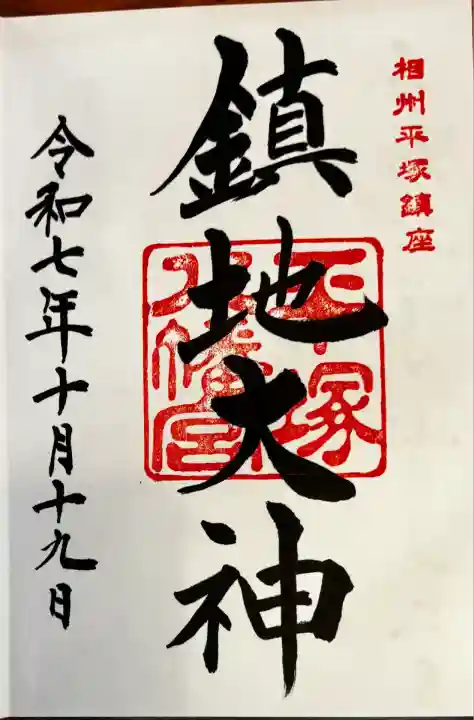 相州平塚鎮座
鎮地大神
平塚
八幡宮
令和七年十月十九日